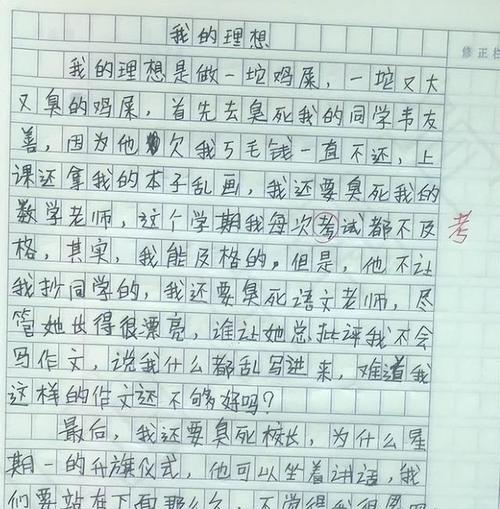 我的理想
修正栏
我的理想是做一坨鸡屎，一坨又大
又臭的鸡屎，首先去臭死我的同学韦友
善，因为他欠我5毛钱一直不还，上
课还拿我的本子乱画，我还要臭死我的
数学老师，这个学期我每次考试都不及
考
格，其实，我能及格的。但是，他不让
我抄同学的，我还要臭死语文老师，尽
管她长得很漂亮，谁让她总批评我不会
写作文，说我什么都乱写进来，难道我
这样的作文还不够好吗？
最后，我还要臭死校长，为什么星
期一的升旗仪式，他可以坐着讲话，我
们要站在下面那么久，不觉得我很